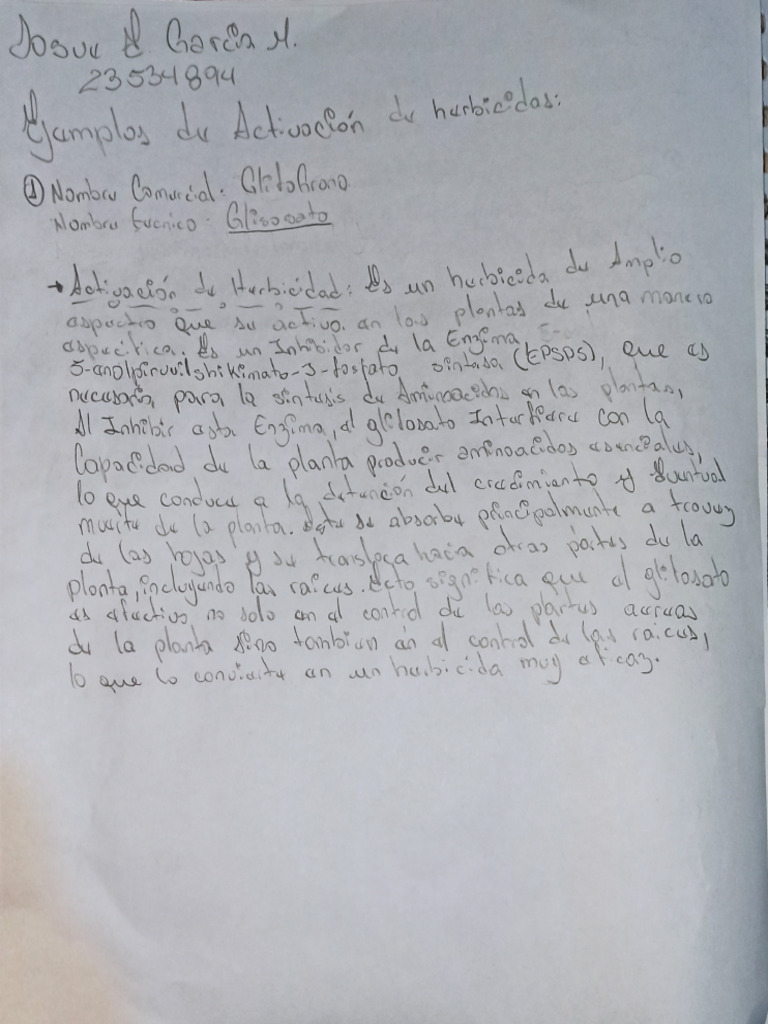 Josue E. García M.
23534894
Ejemplos de Activación de herbicidas:
① Nombre Comercial: Glifo
Nombre tecnico: Glisosato
→ Activación de Herbicidad: Es un herbicida de Amplio
aspectro que se activa en las plantas de una manera
especifica. Es un Inhibidor de la Enzima
5-enolpiruvilshikimato-3-fosfato sintasa (EPSPS), que es
necesaria para la sintesis de Aminoacidos en las plantas,
Al Inhibir esta Enzima, el glifosato Interfiere con la
Capacidad de la planta producir aminoacidos esenciales,
lo que conduce a la detención del crecimiento y Eventual
muerte de la planta. Este se absorbe principalmente a travez
de las hojas y se transloca hacia otras partes de la
planta, incluyendo las raices. Esto significa que el glifosato
es efectivo no solo en el control de las partes aereas
de la planta sino tambien en el control de las raices,
lo que lo convierte en un herbicida muy eficaz.